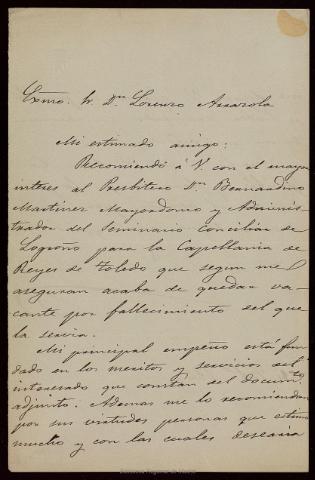 Exmo. Sr. Dn. Lorenzo Arrazola
Mi estimado amigo:
Recomiendo á V. con el mayor
interes al Presbitero Dn. Bernardino
Martinez Mayordomo y Adminis-
trador del Seminario Conciliar de
Logroño para la Capellania de
Reyes de Toledo que segun me
aseguran acaba de quedar va-
cante por fallecimiento del que
la servia.
Mi principal empeño está fun
dado en los meritos y servicios del
interesado que constan del docum.to
adjunto. Ademas me lo recomiendan
por sus virtudes personas que estimo
mucho y con las cuales desearia